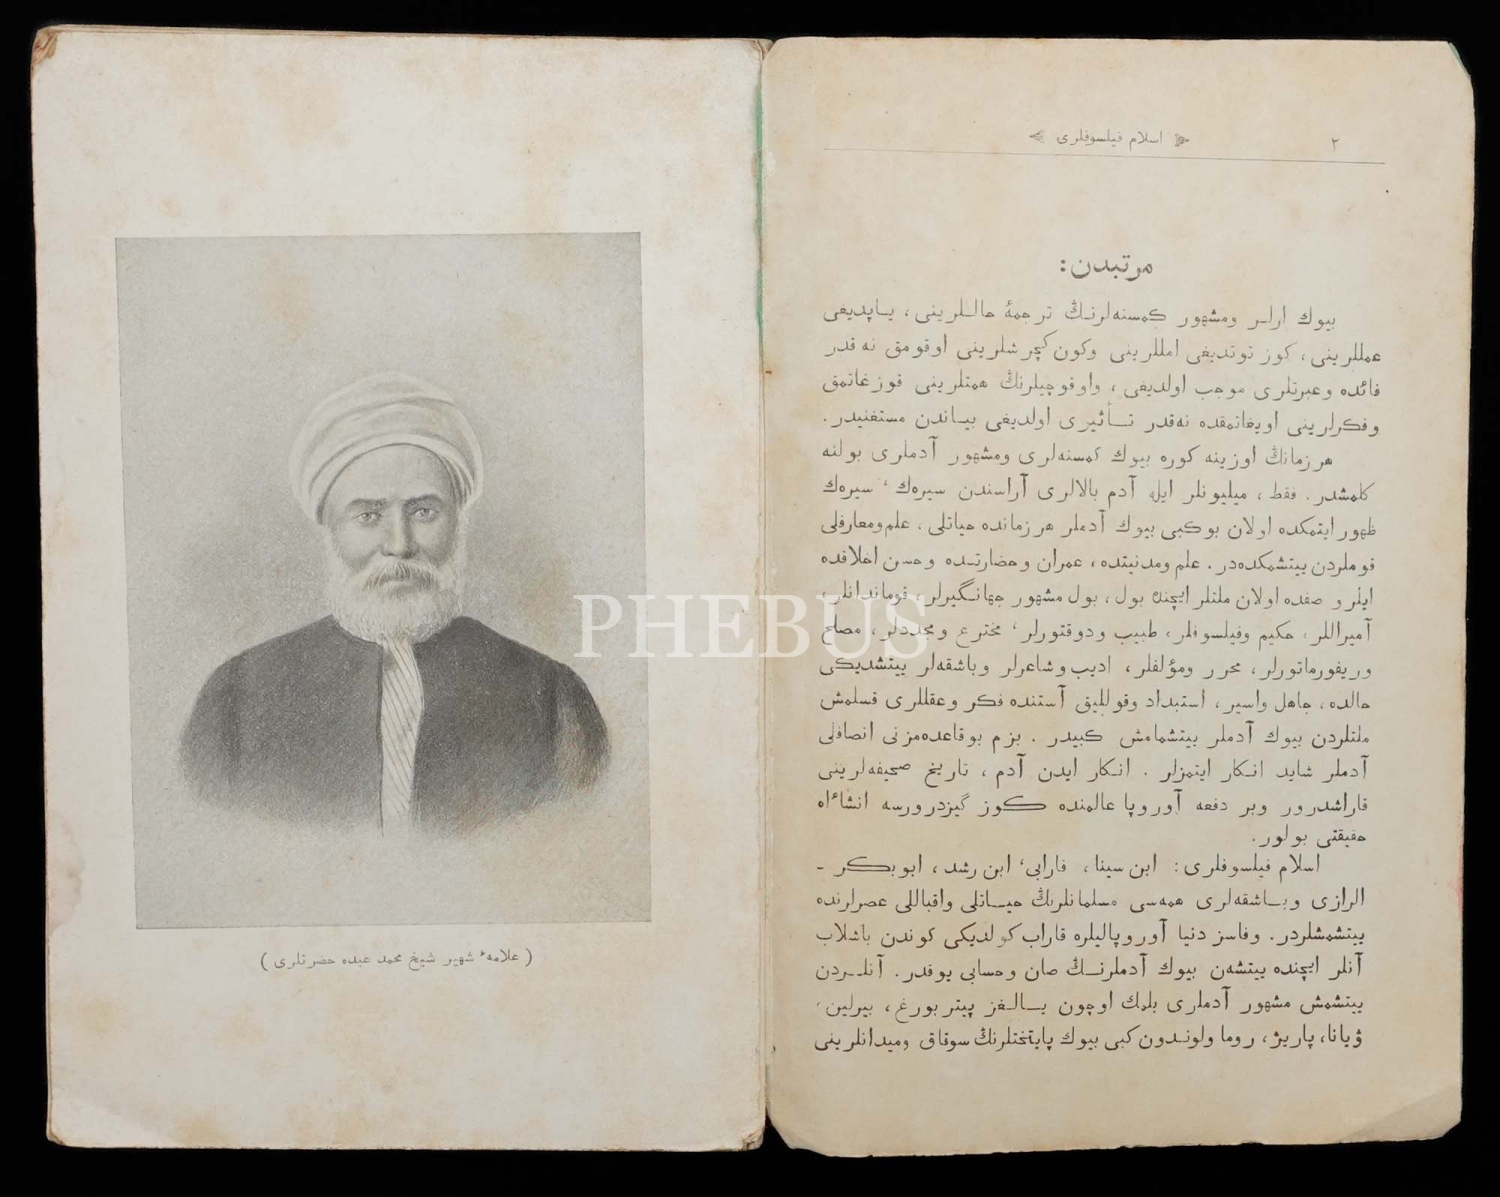 ( علامهٔ شهير شيخ محمد عبده حضرتلرى )
٢
اسلام فيلسوفلرى
مرتبدن:
بيوك ارلر ومشهور كمسنه‌لرنڭ ترجمهٔ حاللرينى، ياپديغى
عمللرينى، كوز توتديغى امللرينى وكون كچرشلرينى اوقومق نه قدر
فائده وعبرتلرى موجب اولديغى، واوقوچيلرنڭ همتلرينى قوزغاتمق
وفكرلرينى اويغاتمقده نه‌قدر تـأثيرى اولديغى بياندن مستغنيدر.
هر زمانڭ اوزينه كوره بيوك كمسنه‌لرى ومشهور آدملرى بولنه
كلمشدر. فقط، ميليونلر ايله آدم بالالرى آراسندن سيره‌ك، سيره‌ك
ظهور ايتمكده اولان بو كبى بيوك آدملر هر زمانده حياتلى، علم ومعارفلى
قوملردن ييتشمكده‌در. علم ومدنيتده، عمران وحضارتده وحسن اخلاقده
ايلرو صفده اولان ملتلر ايچنده بول، بول مشهور جهانگيرلر، قوماندانلر،
آميراللر، حكيم وفيلسوفلر، طبيب ودوقتورلر، مخترع ومجددلر، مصلح
وريفورماتورلر، محرر ومؤلفلر، اديب وشاعرلر وباشقه‌لر ييتشديكى
حالده، جاهل واسير، استبداد وقوللیق آستنده فكر وعقللرى قسلمش
ملتلردن بيوك آدملر ييتشمامش كبيدر. بزم بو قاعده‌مزنى انصافلى
آدملر شايد انكار ايتمزلر. انكار ايدن آدم، تاريخ صحيفه‌لرينى
قاراشدرور وبر دفعه آوروپا عالمنده كوز گيزدرورسه انشاءاه
حقيقتى بولور.
اسلام فيلسوفلرى: ابن سينا، فارابى، ابن رشد، ابوبكر -
الرازى وباشقه‌لرى همه‌سى مسلمانلرنڭ حياتلى واقباللى عصرلرنده
ييتشمشلردر. وفاسز دنيا آوروپاليلره قاراب كولديكى كوندن باشلاب
آنلر ايچنده ييتشه‌ن بيوك آدملرنڭ صان وحسابى يوقدر. آنلردن
ييتشمش مشهور آدملرى بلمك اوچون يالغز پيتربورغ، بيرلين،
ۋيانا، پاريژ، روما ولوندون كبى بيوك پايتختلرنڭ سوقاق وميدانلرينى
PHEBUS